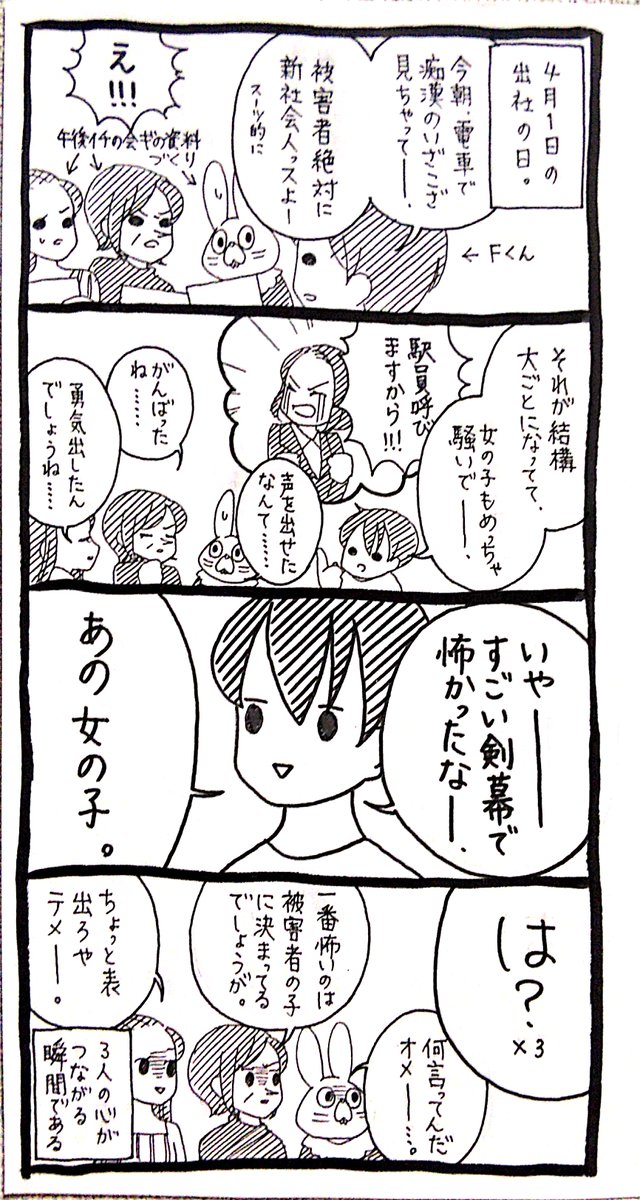 4月1日の
出社の日。
今朝、電車で
痴漢のいざこざ
見ちゃってー、
被害者絶対に
新社会人っスよー
スーツ的に
←Fくん
え!!!
午後イチの会ギの資料
づくり
それが結構
大ごとになってて、
女の子もめっちゃ
騒いでーー、
駅員呼び
ますから!!!
声を出せた
なんて……
がんばった
ね……
勇気出したん
でしょうね……
いやーー
すごい剣幕で
怖かったなー、
あの女の子。
は?
×3
何言ってんだ
オメー…。
一番怖いのは
被害者の子
に決まってる
でしょうが。
ちょっと表
出ろや
テメー。
3人の心が
つながる
瞬間である